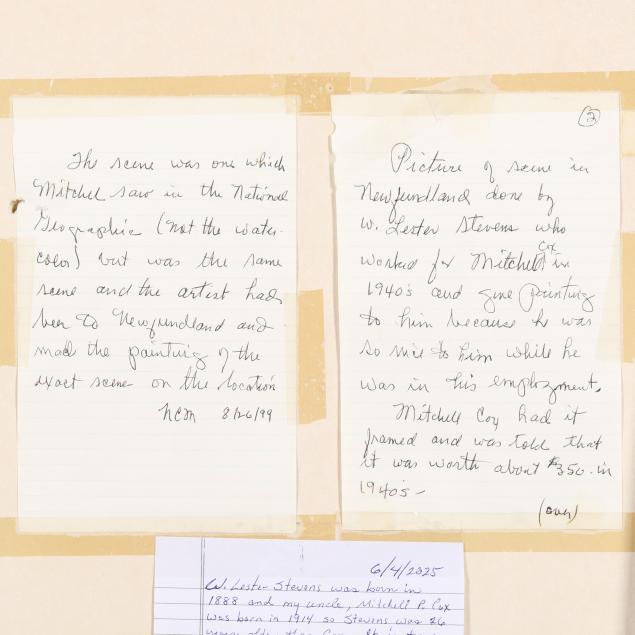 The scene was one which
Mitchel saw in the National
Geographic (not the water-
color) but was the same
scene and the artist had
been to Newfundland and
made the painting of the
exact scene on the location
NCM 8/26/99
2
Picture of scene in
Newfundland done by
W. Lester Stevens who
worked for Mitchell Cox in
1940's and gave painting
to him because he was
so nice to him while he
was in his employment.
Mitchell Cox had it
framed and was told that
it was worth about $350. in
1940's –
(over)
6/4/2025
W. Lester Stevens was born in
1888 and my uncle, Mitchell P. Cox
was born in 1914 so Stevens was 26
years older than Cox. It